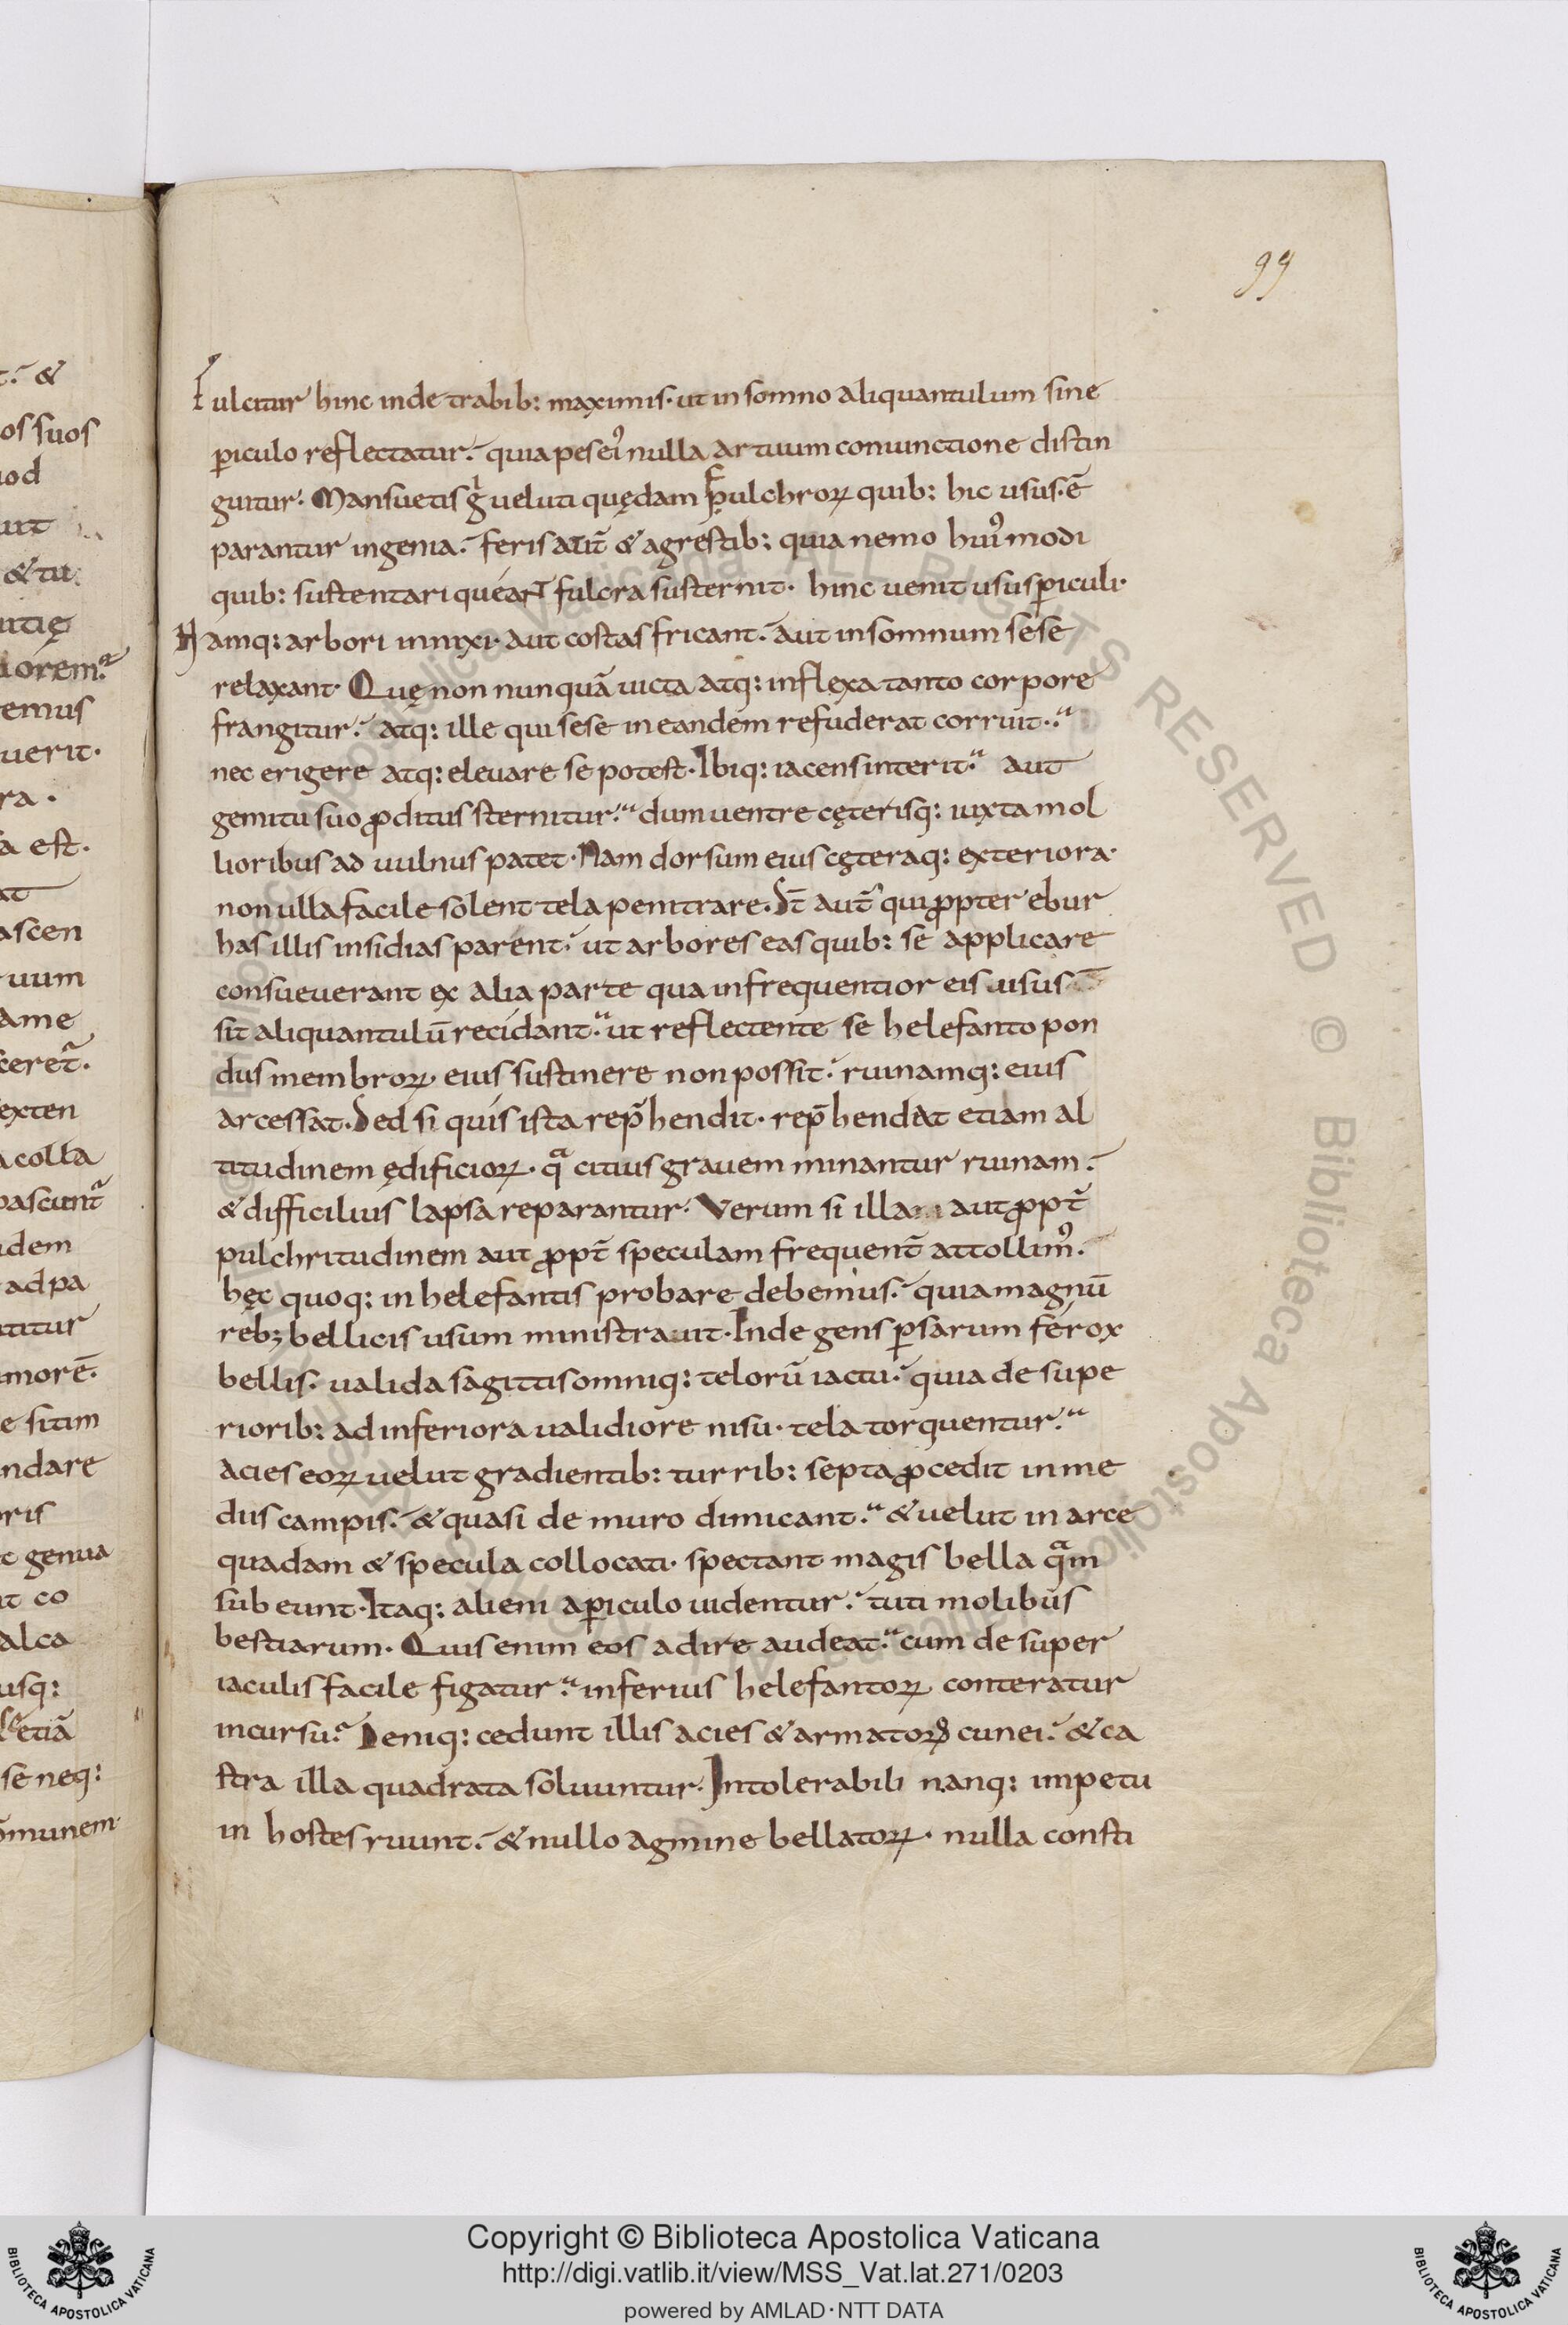 99
t. &
os suos
uod
uit
& tu
utię
uorem
emus
uerit.
ra.
a est.
at
ascen
uum
ame
ceret̃.
exten
a colla
pascunt̃
idem
ad pa
titur
morē.
e sitim
ndare
oris
c genua
ut co
alca
usq:
etiā
se neq:
ōmunem.
fulcitur hinc inde trabib: maximis. ut in somno aliquantulum sine
p̱iculo reflectatur. quia pes ei᾽ nulla artuum coniunctione distin
guitur. Mansuetis g̍ ueluti quędam fulchroꝝ quib: hic usus. ē
parantur ingenia. feris aut̄ & agrestib: quia nemo hui᾽modi
quib: sustentari queant fulcra susternit. hinc uenit usus p̱iculi.
Namq: arbori innixi. aut costas fricant. aut in somnum sese
relaxant. Quę non nunquā uicta atq: inflexa tanto corpore
frangitur. atq: ille qui sese in eandem refuderat corruit.
nec erigere atq: eleuare se potest. Ibiq: iacens interit. aut
gemitu suo ꝓditus sternitur. dum uentre cęterisq: iuxta mol
lioribus ad uulnus patet. Nam dorsum eius cęteraq: exteriora.
non ulla facile solent tela penitrare. St̄ aut̄ qui ꝓpter ebur
has illis insidias parent. ut arbores eas quib: se applicare
consueuerant ex alia parte qua infrequentior eis uisus
sit aliquantulū recidant. ut reflectente se helefanto pon
dus membroꝝ eius sustinere non possit. ruinamq: eius
arcessat. Sed si quis ista rep̄hendit. rep̄hendat etiam al
titudinem ędificioꝝ. qͣ citius grauem minantur ruinam.
& difficilius lapsa reparantur. Verum si illa aut ꝓpt̄
pulchritudinem aut ꝓpt̄ speculam frequent̄ attollim᾽.
hęc quoq: in helefantis probare debemus. quia magnū
reb; bellicis usum ministrauit. Inde gens p̱sarum ferox
bellis. ualida sagittis omniq: telorū iactu. quia de supe
riorib: ad inferiora ualidiore nisu. tela torquentur.
acies eoꝝ uelut gradientib: turrib: septa ꝓcedit in me
diis campis. & quasi de muro dimicant. & uelut in arce
quadam & specula collocati. spectant magis bella qͣm
subeunt. Itaq: alieni a p̱iculo uidentur. tuti molibus
bestiarum. Quis enim eos adire audeat. cum de super
iaculis facile figatur. inferius helefantoꝝ conteratur
incursu. Deniq: cedunt illis acies & armatoꝝ cunei. & ca
stra illa quadrata soluuntur. Intolerabili nanq: impetu
in hostes ruunt. & nullo agmine bellatoꝝ. nulla consti
Copyright © Biblioteca Apostolica Vaticana
http://digi.vatlib.it/view/MSS_Vat.lat.271/0203
powered by AMLAD · NTT DATA
BIBLIOTECA APOSTOLICA VATICANA
BIBLIOTECA APOSTOLICA VATICANA